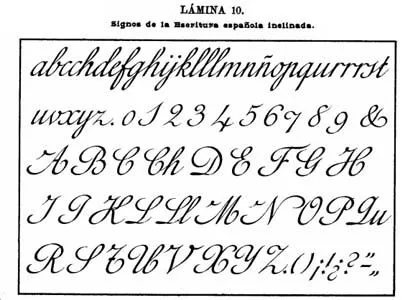 LÁMINA 10.
Signos de la Escritura española inclinada.
abcchdefghijklllmnñopqurrrst
uvxyz. 0 1 2 3 4 5 6 7 8 9 &
A B C Ch D E F G H
I J K L Ll M N O P Qu
R S T U V X Y Z. ( ) ¡ ! ¿ ? " - „